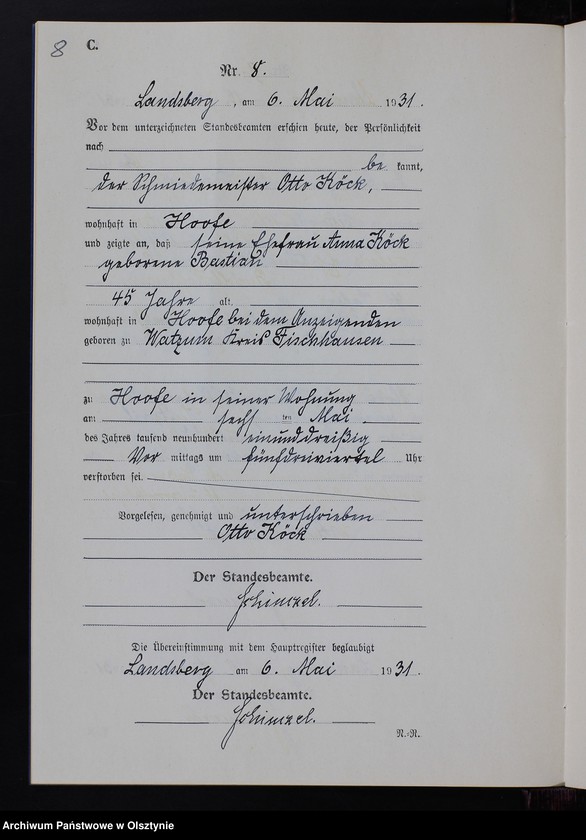 8 C.
Nr. 8.
Landsberg, am 6. Mai 1931.
Vor dem unterzeichneten Standesbeamten erschien heute, der Persönlichkeit
nach
be kannt,
der Schmiedemeister Otto Köck,
wohnhaft in Hoofe
und zeigte an, daß seine Ehefrau Anna Köck
geborene Bastian
45 Jahre alt,
wohnhaft in Hoofe bei dem Anzeigenden
geboren zu Watzum Kreis Fischhausen
zu Hoofe in seiner Wohnung
am sechs ten Mai
des Jahres tausend neunhundert einunddreißig
Vor mittags um fünfdreiviertel Uhr
verstorben sei.
Vorgelesen, genehmigt und unterschrieben
Otto Köck
Der Standesbeamte.
Schinzel.
Die Übereinstimmung mit dem Hauptregister beglaubigt
Landsberg am 6. Mai 1931.
Der Standesbeamte.
Schinzel.
N.=R.
Archiwum Państwowe w Olsztynie